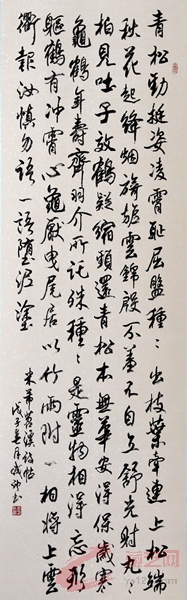 青松勁挺姿凌霄恥屈盤種〻出枝葉牽連上松端
秋花起絳烟旖旎雲錦殷不羞不自立舒光射丸〻
柏見吐子效鶴疑縮頭還青松本無華安得保歲寒
龜鶴年壽齊羽介所託殊種〻是靈物相得忘形
軀鶴有沖霄心龜厭曳尾居以竹兩附口相將上雲
衢報汝慎勿語一語墮泥塗
米芾 帖
戊子 月 書